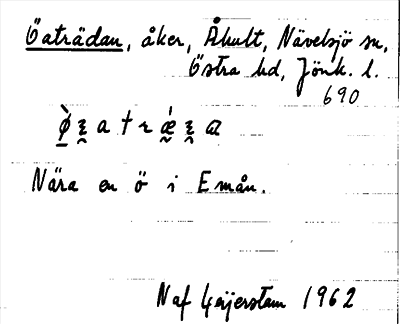 Öaträdan, åker, Åhult, Nävelsjö sn,
Östra hd, Jönk. l.
690
Nära en ö i Emån.
N af Geijerstam 1962